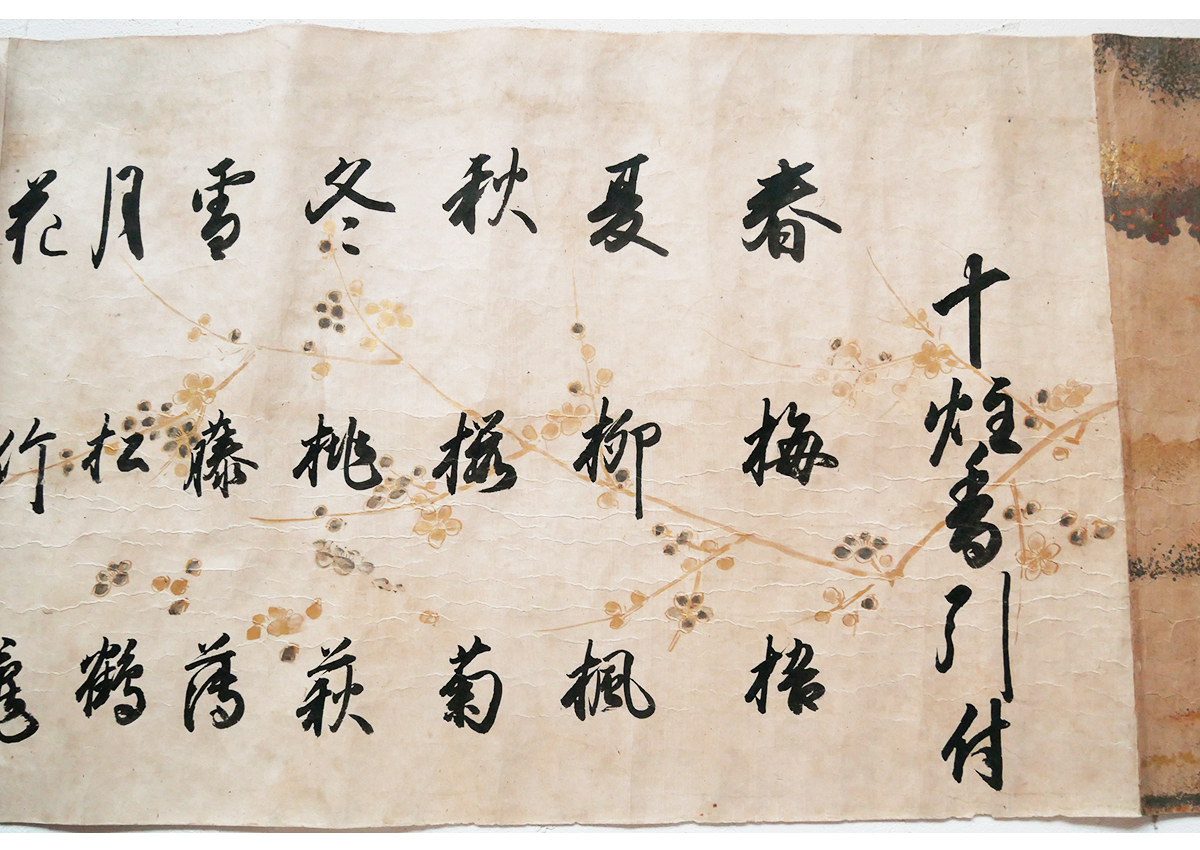 十炷香引付
春 梅 梧
夏 柳 楓
秋 桜 菊
冬 桃 萩
雪 藤 薄
月 松 鶴
花 竹